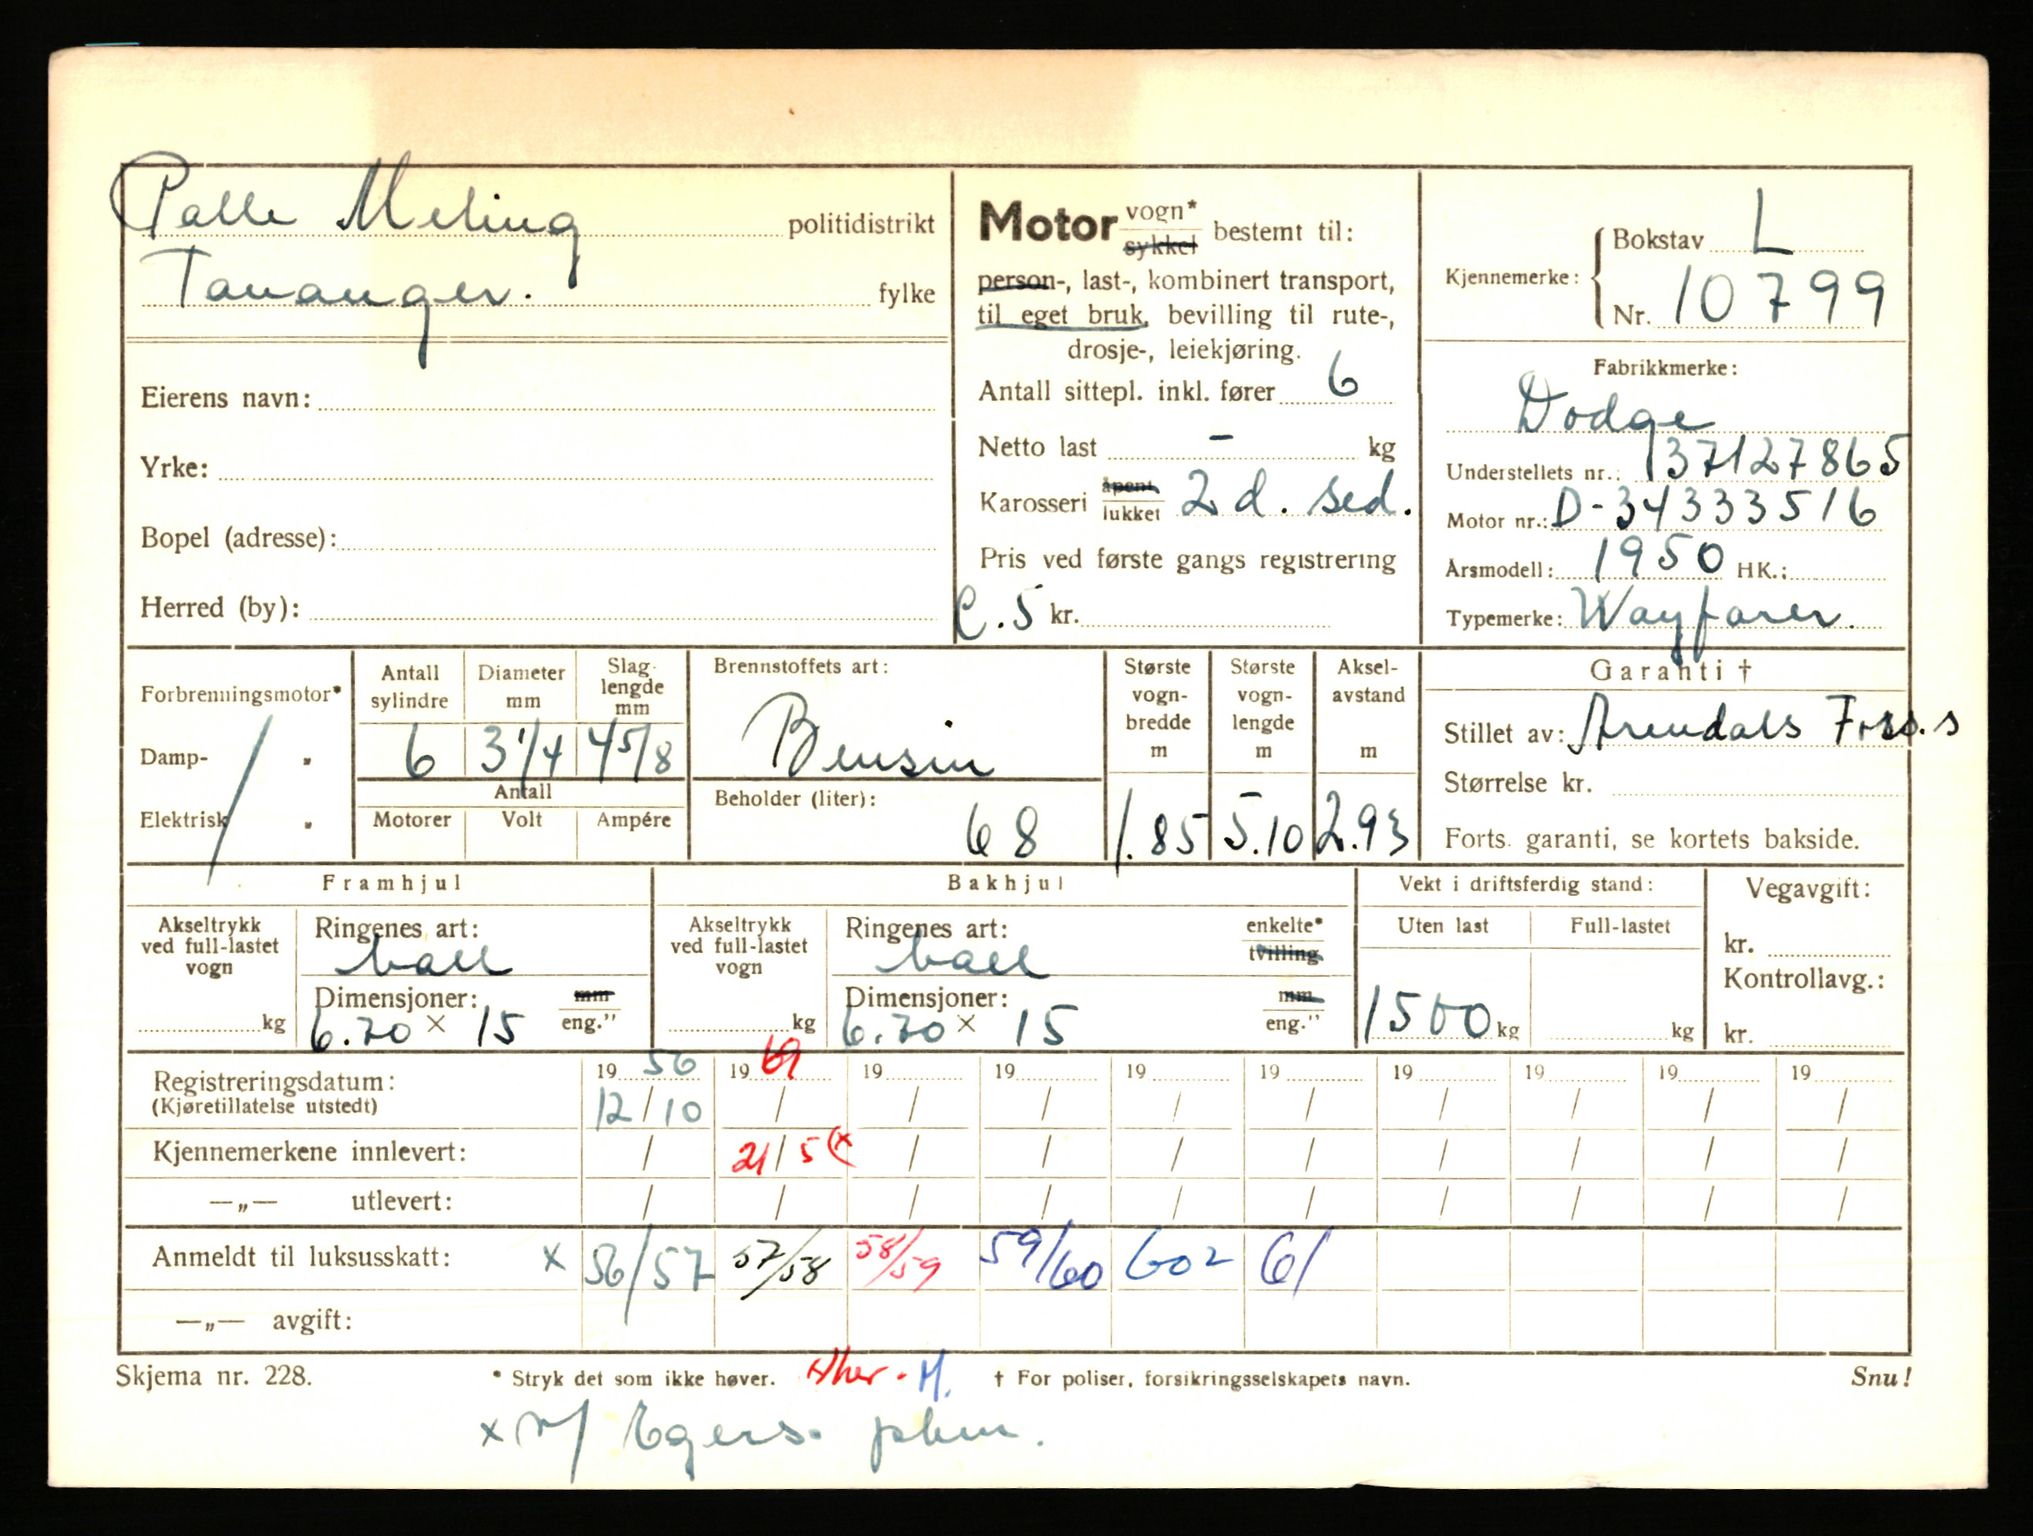 Palle Meling politidistrikt
Tananger. fylke
Eierens navn:
Yrke:
Bopel (adresse):
Herred (by):
Motor vogn* sykkel bestemt til:
person-, last-, kombinert transport,
til eget bruk, bevilling til rute-,
drosje-, leiekjøring.
Antall sittepl. inkl. fører 6
Netto last - kg
Karosseri åpent lukket 2 d. sed.
Pris ved første gangs registrering
C.5 kr.
Kjennemerke: Bokstav L
Nr. 10799
Fabrikkmerke:
Dodge
Understellets nr.: 37127865
Motor nr.: D-34333516
Årsmodell: 1950 HK.:
Typemerke: Wayfarer.
Forbrenningsmotor*
Damp- "
Elektrisk "
Antall sylindre 6
Diameter mm 3 1/4
Slaglengde mm 4 5/8
Antall
Motorer Volt Ampére
Brennstoffets art:
Bensin
Beholder (liter):
68
Største vognbredde m 1.85
Største vognlengde m 5.10
Akselavstand m 2.93
Garanti †
Stillet av: Arendals Frss.s
Størrelse kr.
Forts. garanti, se kortets bakside.
Framhjul
Akseltrykk ved full-lastet vogn
kg
Ringenes art:
ball
Dimensjoner: mm
6.70 × 15 eng."
Bakhjul
Akseltrykk ved full-lastet vogn
kg
Ringenes art: enkelte*
ball tvilling
Dimensjoner: mm
6.70 × 15 eng."
Vekt i driftsferdig stand:
Uten last Full-lastet
1500 kg kg
Vegavgift:
kr.
Kontrollavg.:
kr.
Registreringsdatum: 1956 1969 19 19 19 19 19 19 19 19
(Kjøretillatelse utstedt) 12/10 / / / / / / / / /
Kjennemerkene innlevert: / 21/5 (x / / / / / / / /
—„— utlevert: / / / / / / / / / /
Anmeldt til luksusskatt: x 56/57 57/58 58/59 59/60 602 61
—„— avgift:
Skjema nr. 228. * Stryk det som ikke høver. † For poliser, forsikringsselskapets navn. Snu!
x Egers.